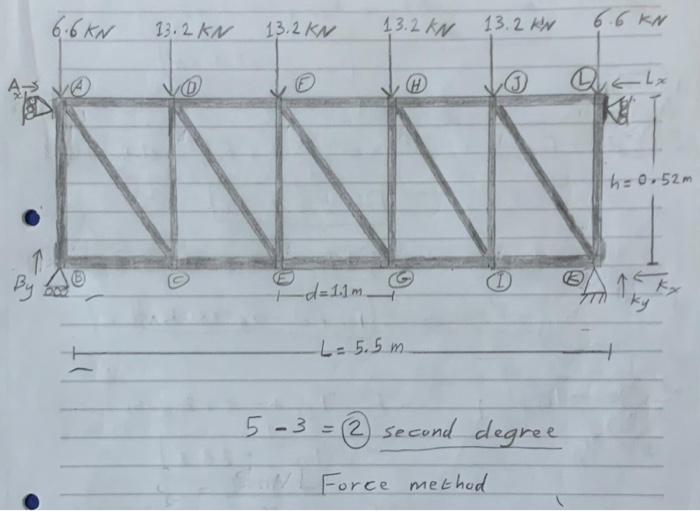 6.6 KN 13.2 KN 13.2 KN 13.2 KN 13.2 KN 6.6 KN
Ax A D F H J L Lx
h = 0.52m
By B C E G I K Ky Kx
d=1.1m
L= 5.5 m
5 - 3 = 2 second degree
Force method